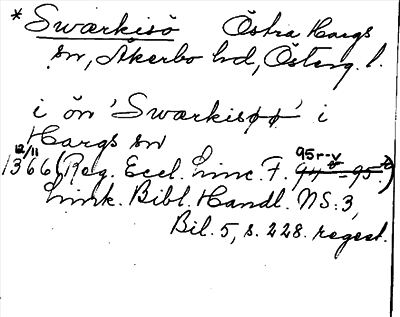 *Swærkisö Östra Hargs
sn, Åkerbo hd, Österg. l.
i ön 'Swærkisøø' i
Hargs sn
12/11 1366 (Reg. Eccl. Linc. F. 95r-v)
Link. Bibl. Handl. NS: 3,
Bil. 5, s. 228. regest.